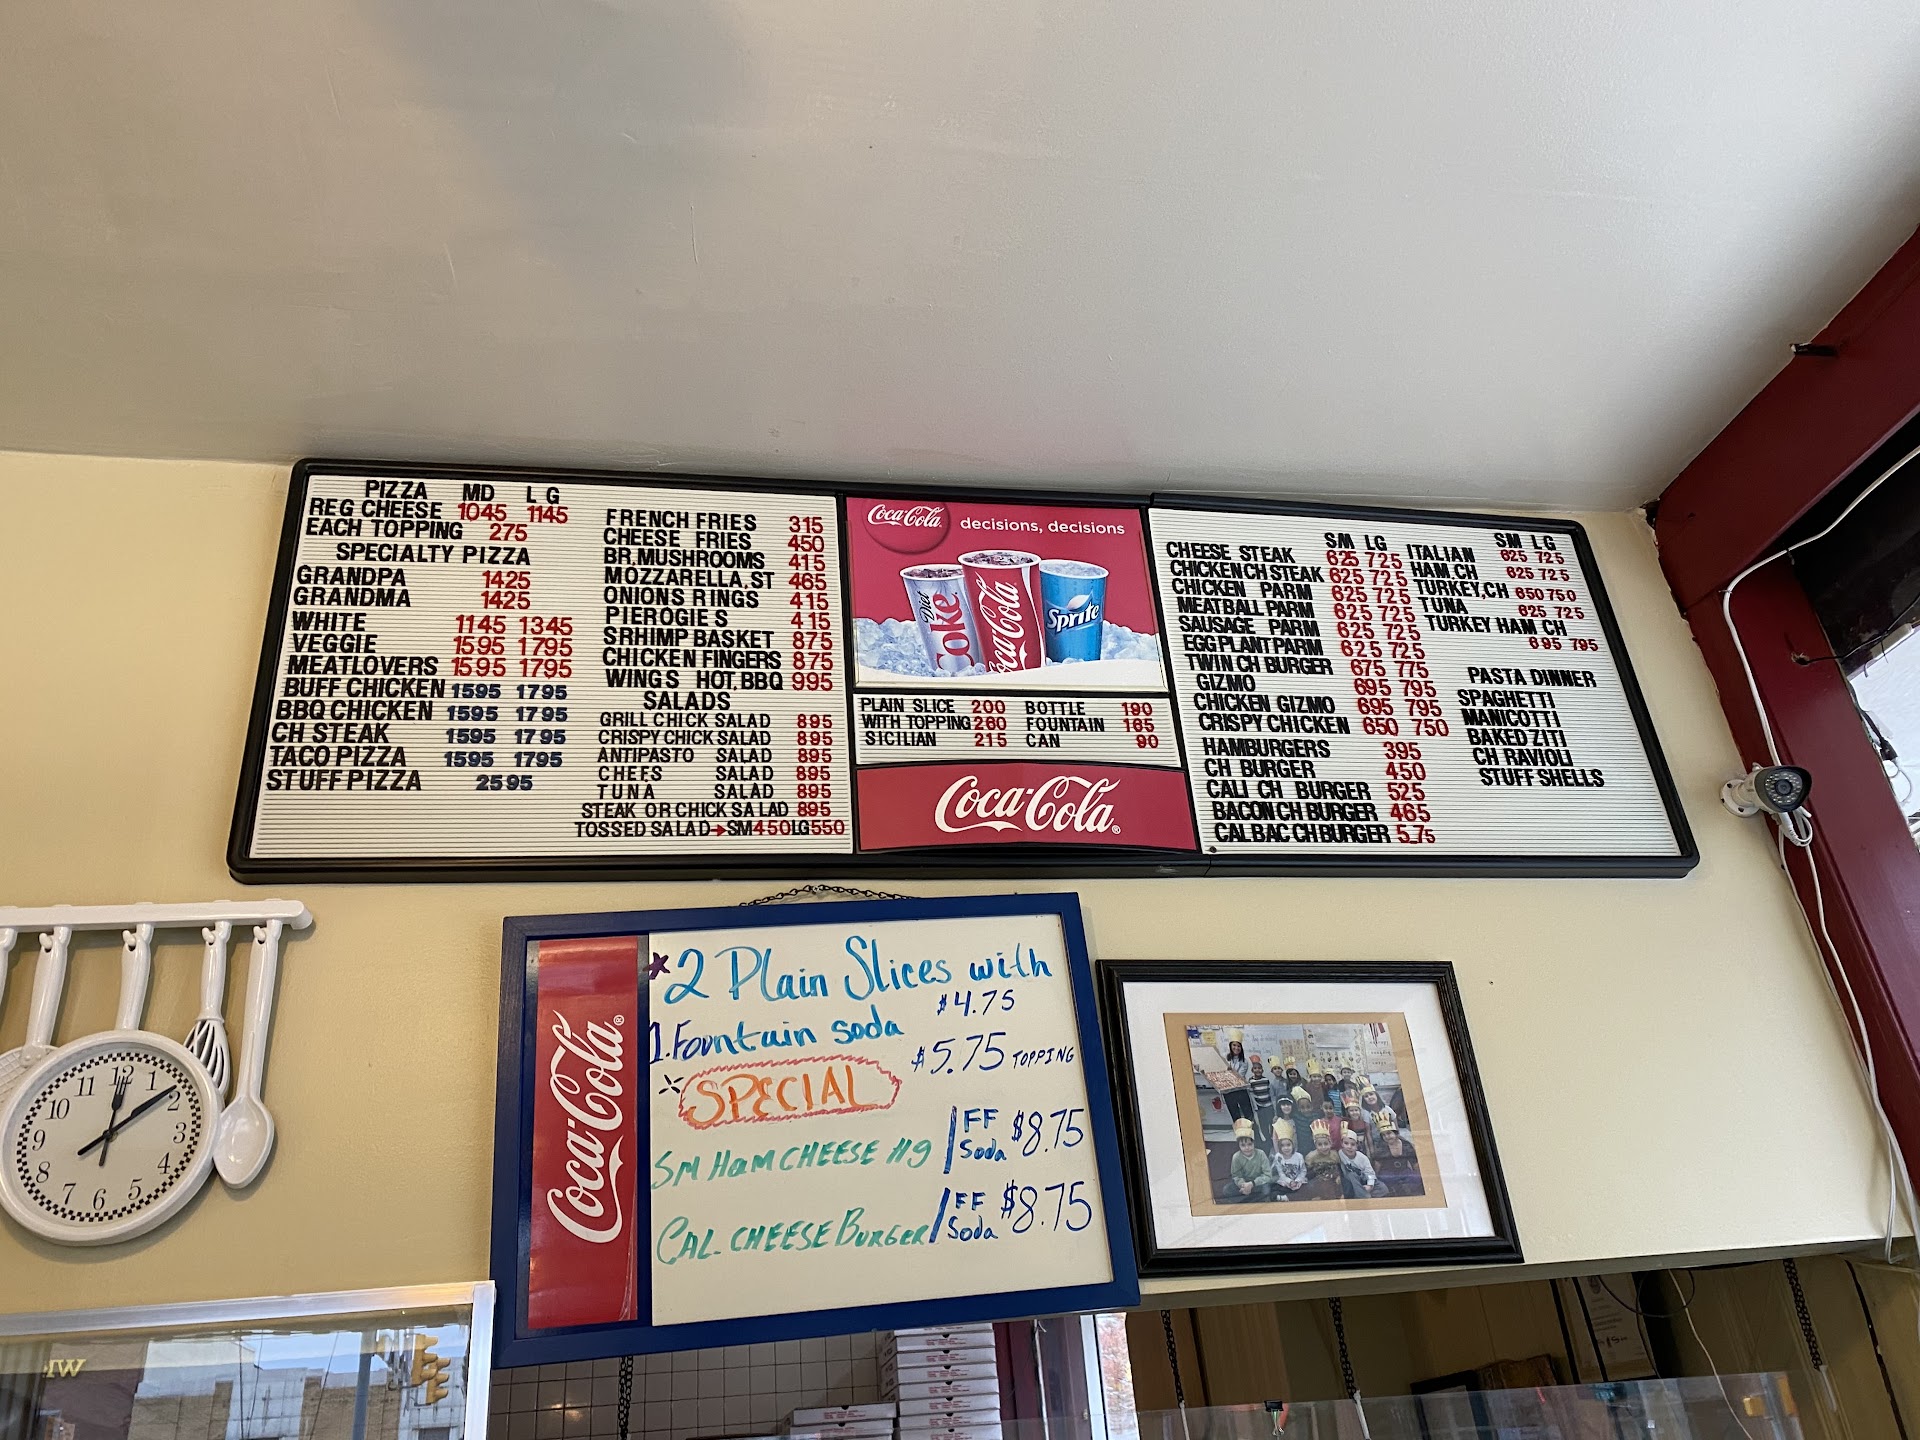 PIZZA MD LG
REG CHEESE 1045 1145
EACH TOPPING 275
SPECIALTY PIZZA
GRANDPA 1425
GRANDMA 1425
WHITE 1145 1345
VEGGIE 1595 1795
MEATLOVERS 1595 1795
BUFF CHICKEN 1595 1795
BBQ CHICKEN 1595 1795
CH STEAK 1595 1795
TACO PIZZA 1595 1795
STUFF PIZZA 2595
FRENCH FRIES 315
CHEESE FRIES 450
BR.MUSHROOMS 415
MOZZARELLA.ST 465
ONIONS RINGS 415
PIEROGIES 415
SRHIMP BASKET 875
CHICKEN FINGERS 875
WINGS HOT.BBQ 995
SALADS
GRILL CHICK SALAD 895
CRISPY CHICK SALAD 895
ANTIPASTO SALAD 895
CHEFS SALAD 895
TUNA SALAD 895
STEAK OR CHICK SALAD 895
TOSSED SALAD→SM450LG550
Coca-Cola decisions, decisions
Diet Coke
Coca-Cola
Sprite
PLAIN SLICE 200
WITH TOPPING 260
SICILIAN 215
BOTTLE 190
FOUNTAIN 165
CAN 90
Coca-Cola®
SM LG
CHEESE STEAK 625 725
CHICKEN CH STEAK 625 725
CHICKEN PARM 625 725
MEATBALL PARM 625 725
SAUSAGE PARM 625 725
EGGPLANT PARM 625 725
TWIN CH BURGER 675 775
GIZMO 695 795
CHICKEN GIZMO 695 795
CRISPY CHICKEN 650 750
HAMBURGERS 395
CH BURGER 450
CALI CH BURGER 525
BACON CH BURGER 465
CAL BAC CH BURGER 5.75
SM LG
ITALIAN 625 725
HAM.CH 625 725
TURKEY.CH 650 750
TUNA 625 725
TURKEY HAM CH
695 795
PASTA DINNER
SPAGHETTI
MANICOTTI
BAKED ZITI
CH RAVIOLI
STUFF SHELLS
Coca-Cola®
*2 Plain Slices with
1.Fountain soda $4.75
$5.75 TOPPING
SPECIAL
SM HAM CHEESE H9 / FF Soda $8.75
CAL. CHEESE BURGER / FF Soda $8.75
12
1
2
3
4
5
6
7
8
9
10
11